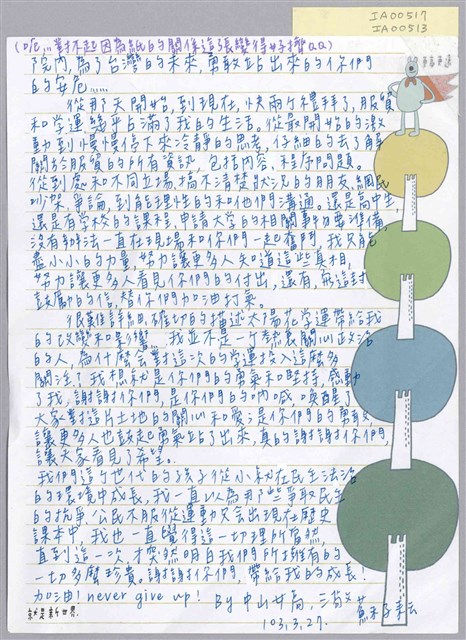 IA00517
IA00513
(呃...對不起因為紙的關係這張變得好擠QQ)
院內,為了台灣的未來,勇敢站出來的你們
的安危......
從那天開始,到現在,快兩個禮拜了,服貿
和學運幾乎占滿了我的生活。從最開始的激
動到慢慢停下來冷靜的思考,仔細的去了解
關於服貿的所有資訊,包括內容、程序問題。
從到處和不同立場、搞不清楚狀況的朋友、網民
吵架、爭論,到能理性的和他們溝通。還是高中生,
還是有學校的課程、申請大學的相關事物要準備,
沒有辦法一直在現場和你們一起奮鬥,我只能
盡小小的力量,努力讓更多人知道這些真相,
努力讓更多人看見你們的付出,還有,寫這封
鼓勵的信,替你們加油打氣。
很難詳細、確切的描述太陽花學運帶給我
的改變和影響。我並不是一個熱衷關心政治
的人,為什麼會對這次的學運投入這麼多
關注?我想就是你們的勇氣和堅持,感動
了我,謝謝你們,是你們的吶喊,喚醒了
大家對這片土地的關心和愛;是你們的勇敢,
讓更多人也鼓起勇氣站了出來,真的謝謝你們,
讓大家看見了希望。
我們這個世代的孩子從小就在民生法治
的環境中成長,我一直以為那些爭取民主
的抗爭、公民不服從運動只會出現在歷史
課本中,我也一直覺得這一切理所當然,
直到這一次,才突然明白我們所擁有的
一切多麼珍貴。謝謝你們,帶給我的成長!
加油! never give up! By 中山女高,三
103.3.27.
就是新世界.